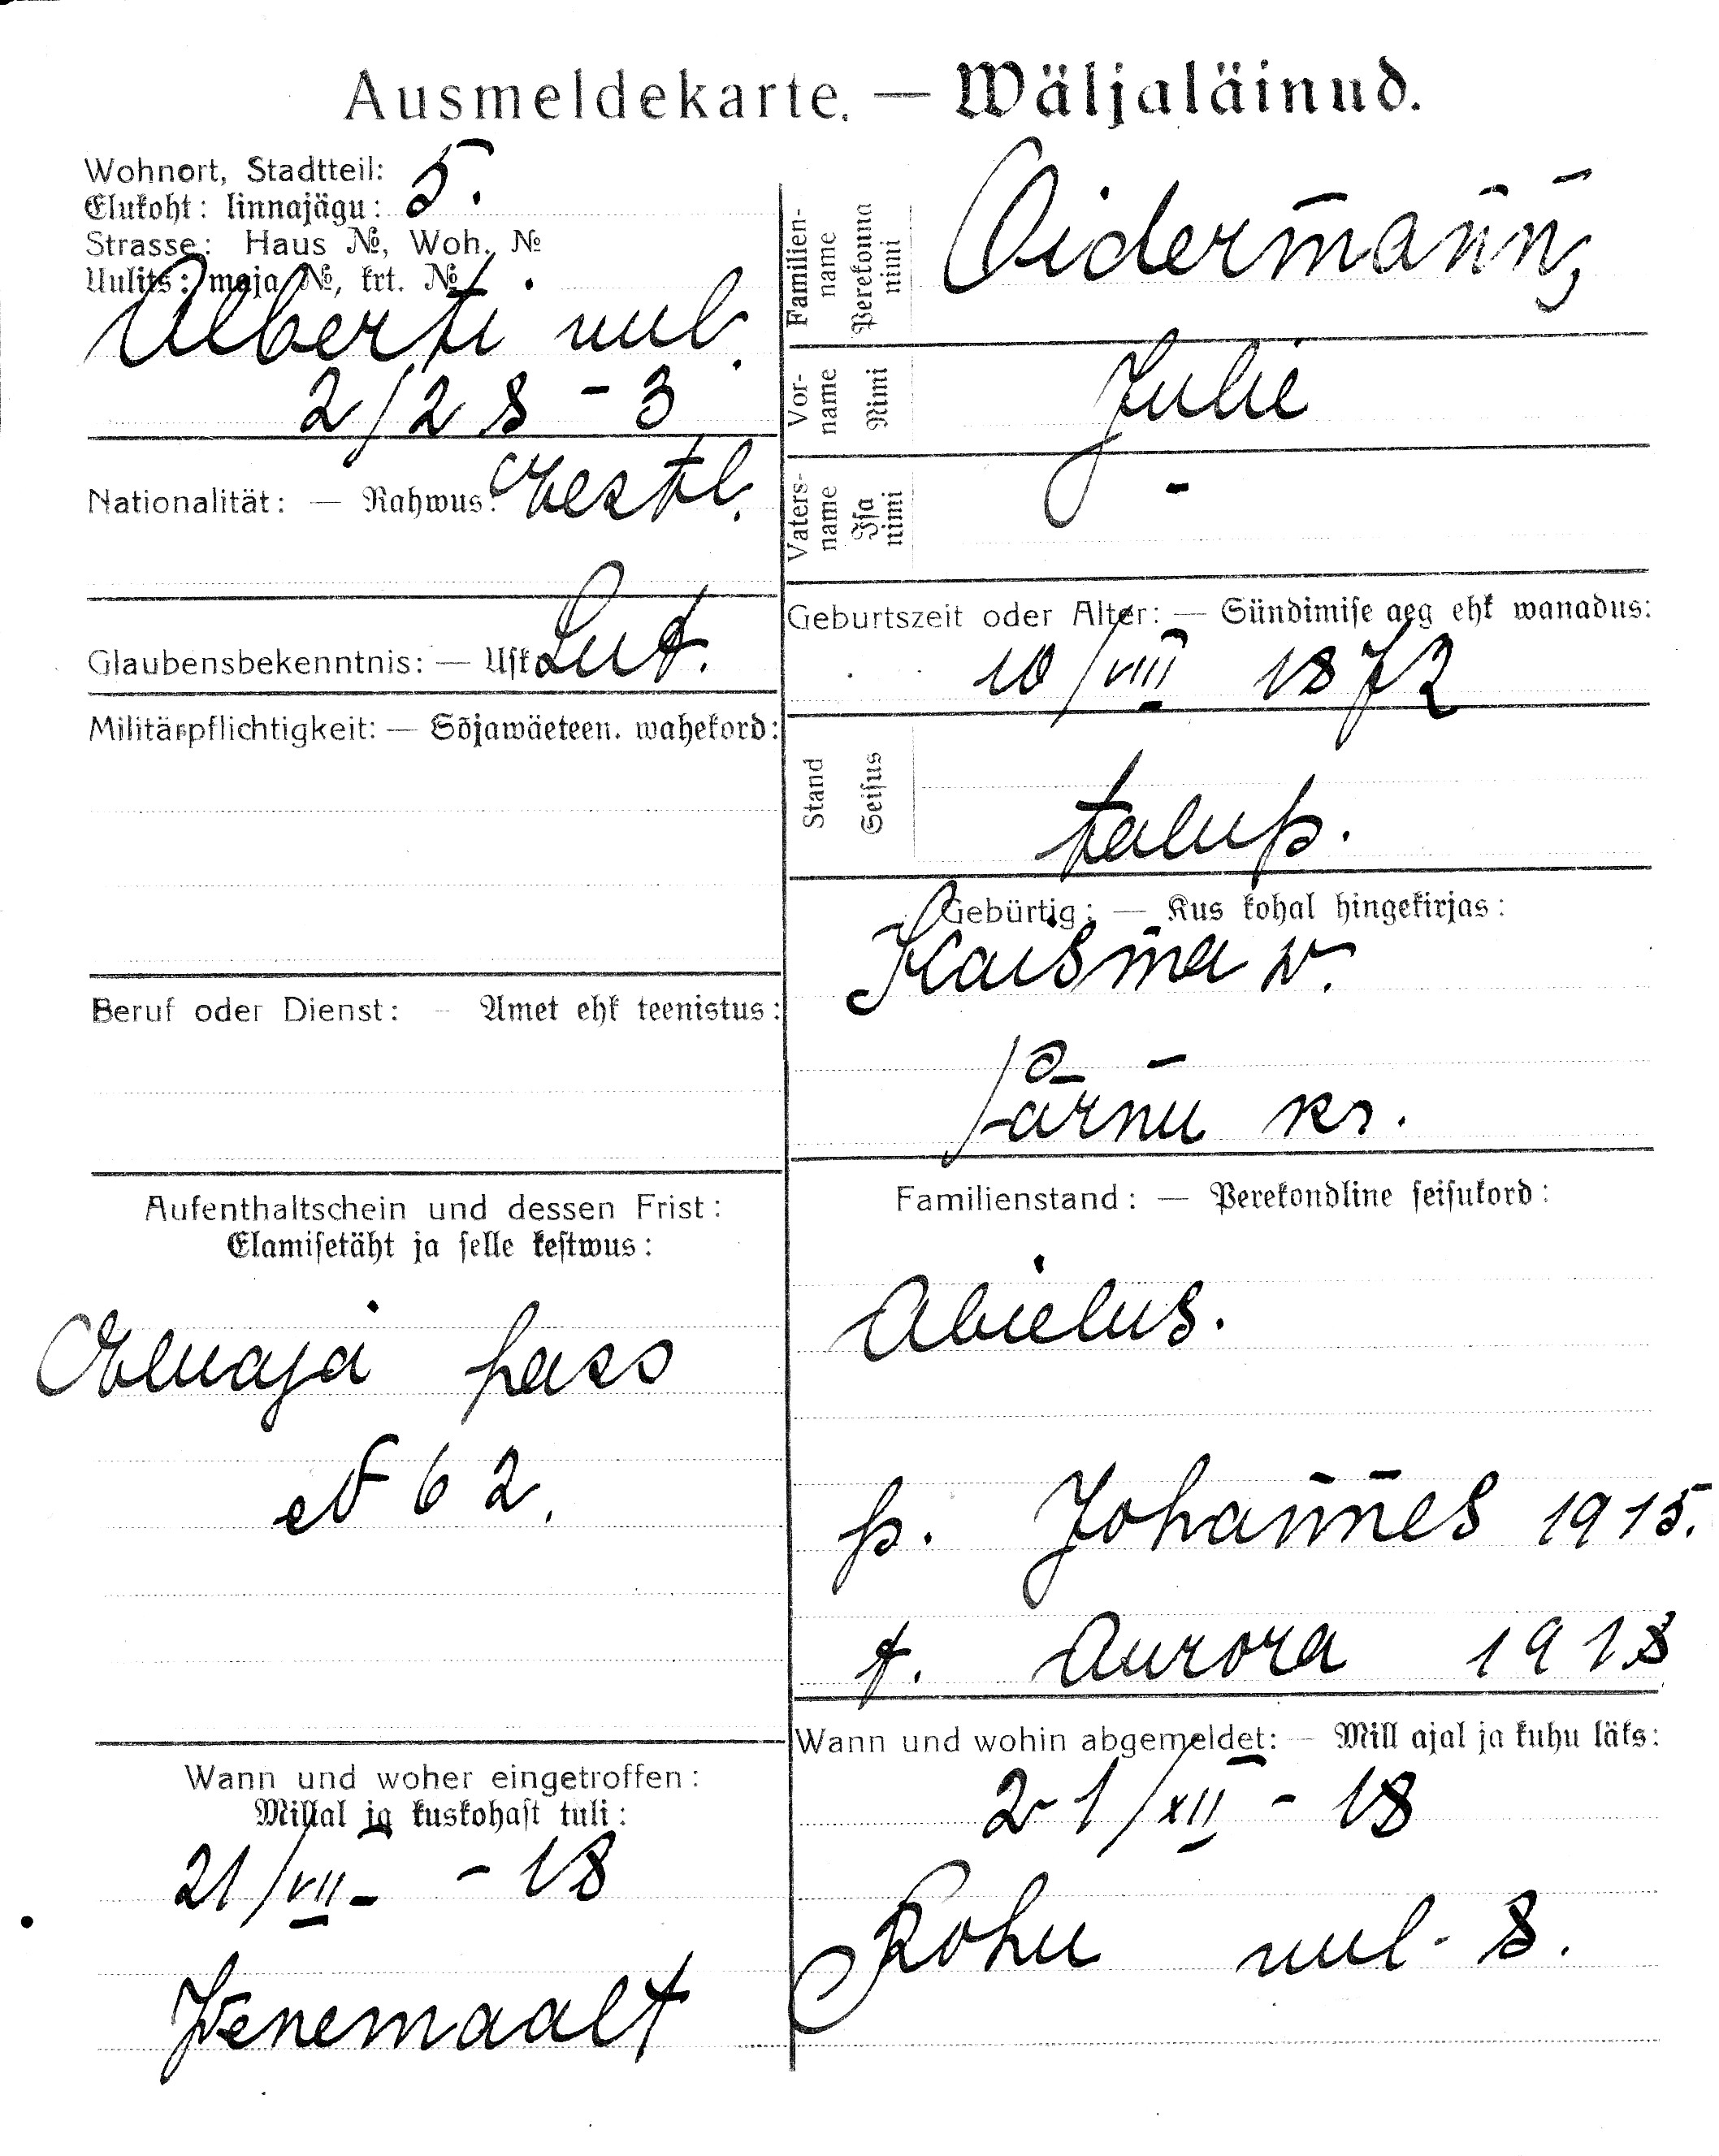 Ausmeldekarte. — Wäljaläinud.
Wohnort, Stadtteil:
Elukoht: linnajägu: 5.
Strasse: Haus №, Woh. №
Uulits: maja №, krt. №
Alberti uul.
2/28 - 3
Nationalität: — Rahwus: Eestl.
Glaubensbekenntnis: — Usk Lut.
Militärpflichtigkeit: — Sõjawäeteen. wahekord:
Beruf oder Dienst: — Amet ehk teenistus:
Aufenthaltschein und dessen Frist:
Elamisetäht ja selle kestwus:
Elmaja pass
№ 62.
Wann und woher eingetroffen:
Millal ja kuskohast tuli:
21/VII - 18
Wenemaalt
Familien-
name
Perekonna
nimi
Oidermann,
Vor-
name
Nimi
Julie
Vaters-
name
Isa
nimi
-
Geburtszeit oder Alter: — Sündimise aeg ehk wanadus:
10/VIII 1872
Stand
Seisus
talup.
Gebürtig: — Kus kohal hingekirjas:
Kaisma w.
Pärnu kr.
Familienstand: — Perekondline seisukord:
Abielus.
p. Johannes 1915.
t. Aurora 1918
Wann und wohin abgemeldet: — Mill ajal ja kuhu läks:
21/XII - 18
Rohu uul. 8.